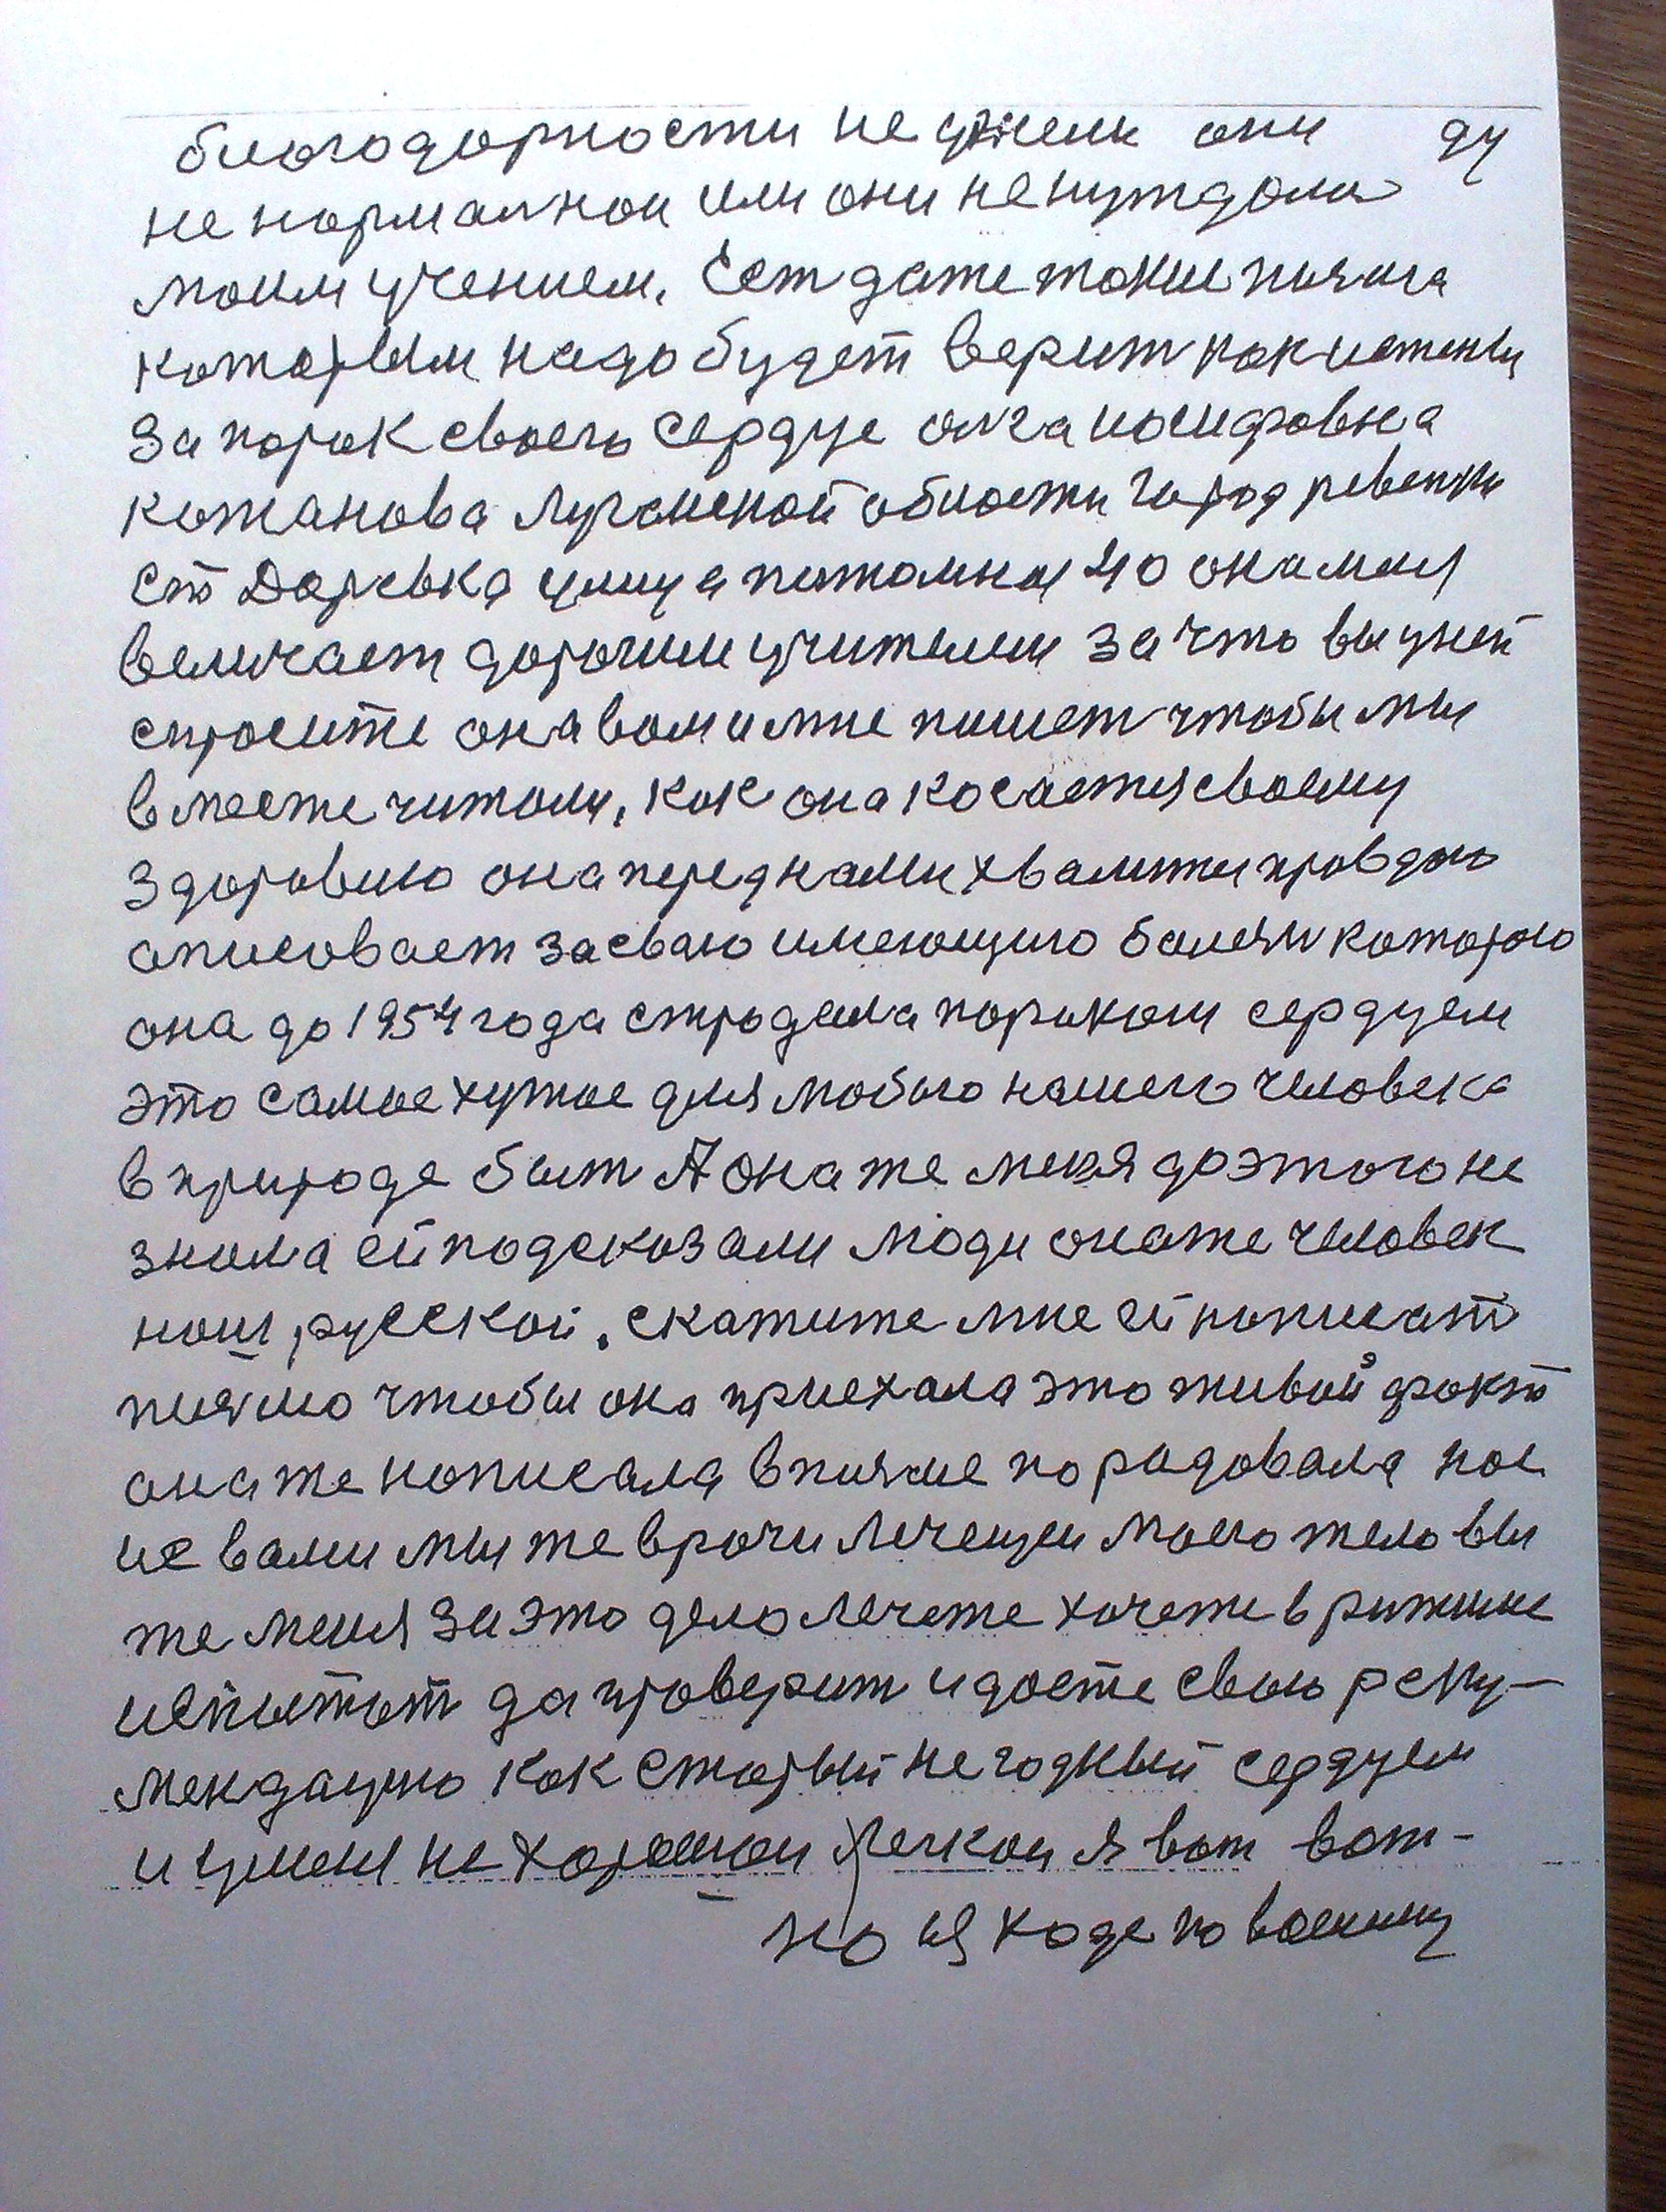 благодарности не ужели они ду
не нормалной или они не нуждали
моим учением. Ест даже такие писма
которым надо будет верит как истены
за порок своего сердце олга иосифовна
котанова луганской области город ревенки
ст Даревка улица 40 она меня
величает дорогим учителем за что вы у ней
спросите она вам и мне пишет чтобы мы
в месте читали, как она косается своему
здоровию она перед нами хвалится правдою
описовает за сваю имеющию болезн которою
она до 1954 года страдала пориком сердцем
это самое хужое для любого нашего человека
в природе быт А она же меня до этого не
знала ей подсказали люди она же человек
наш русской. скажите мне ей написат
писмо чтобы она приехала это живой факт
она же написала в писме порадовала нас
и с вами мы же врачи лечещеи моего тело вы
же меня за это дело лечете хочете в режиме
испытат да проверит и даете свою реку-
мендацию как старый негодный сердцем
и у меня не хорошои легкои я вот вот-
но я ходе по военему